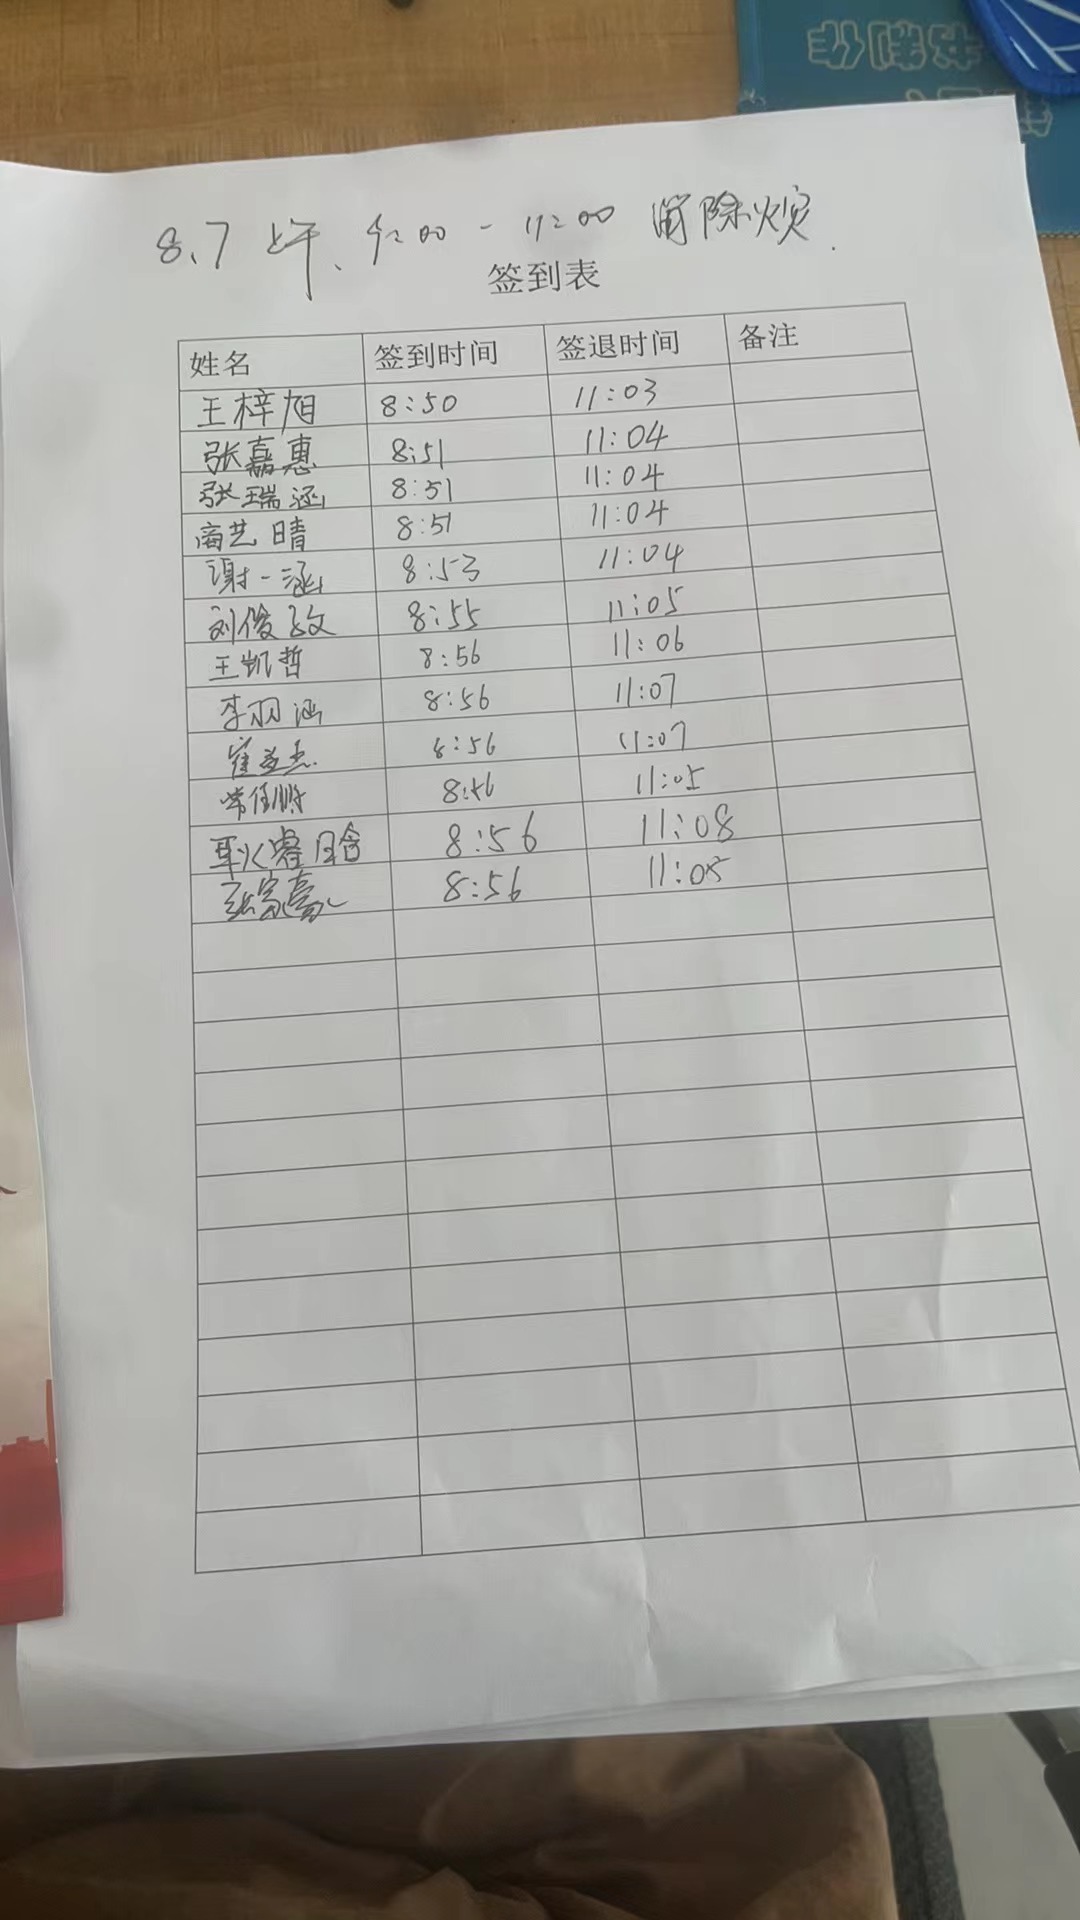 8.7 上午、9:00 - 11:00 消除火灾.
签到表
姓名 签到时间 签退时间 备注
王梓旭 8:50 11:03
张嘉惠 8:51 11:04
张瑞涵 8:51 11:04
商艺晴 8:51 11:04
谢一涵 8:53 11:04
刘俊 8:55 11:05
王凯哲 8:56 11:06
李羽涵 8:56 11:07
崔 8:56 11:07
常 8:56 11:05
耿睿晗 8:56 11:08
张家豪 8:56 11:08